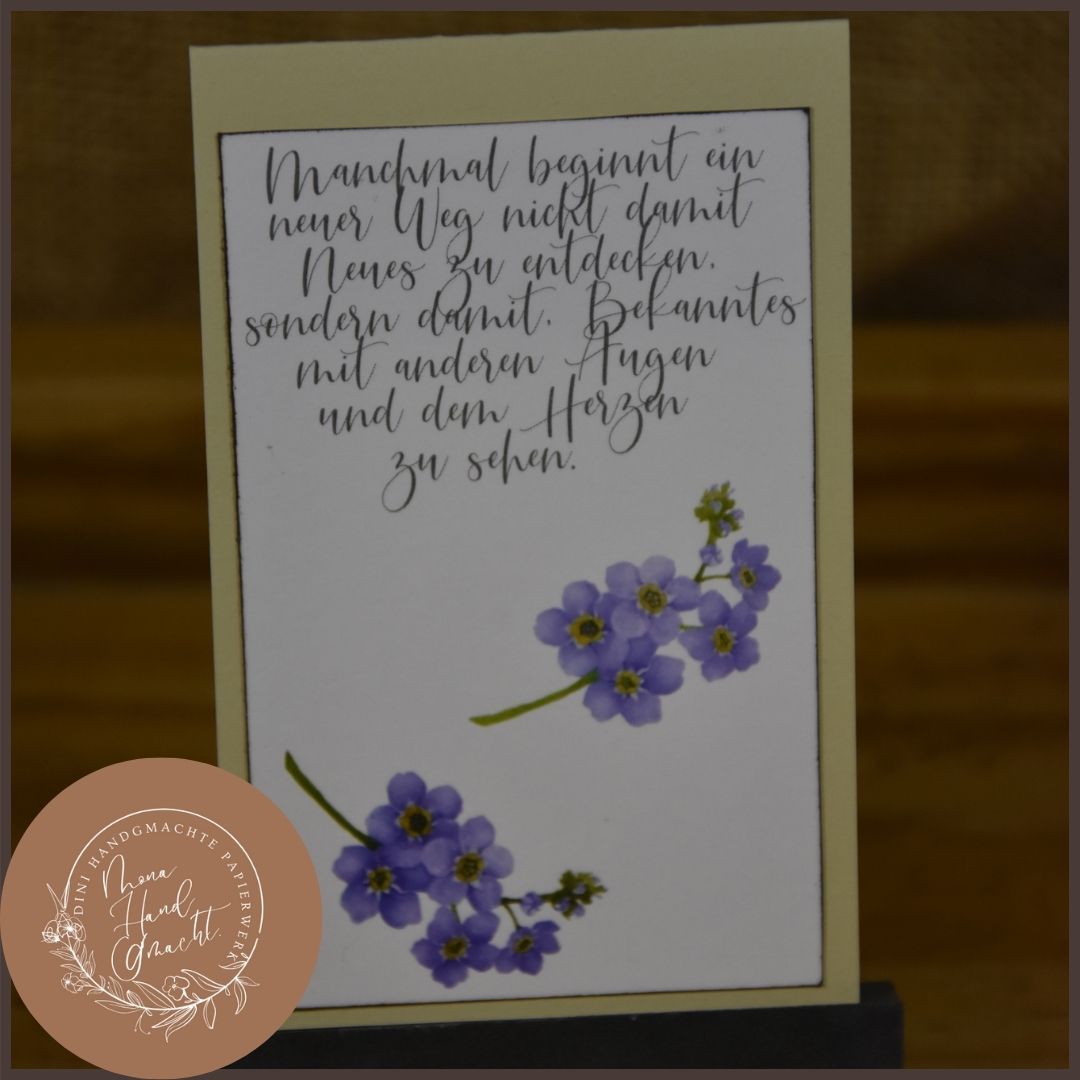 Manchmal beginnt ein
neuer Weg nicht damit
Neues zu entdecken,
sondern damit, Bekanntes
mit anderen Augen
und dem Herzen
zu sehen.
DINI HANDGMACHTE PAPIERWERK
Mona
Hand
Gmacht.